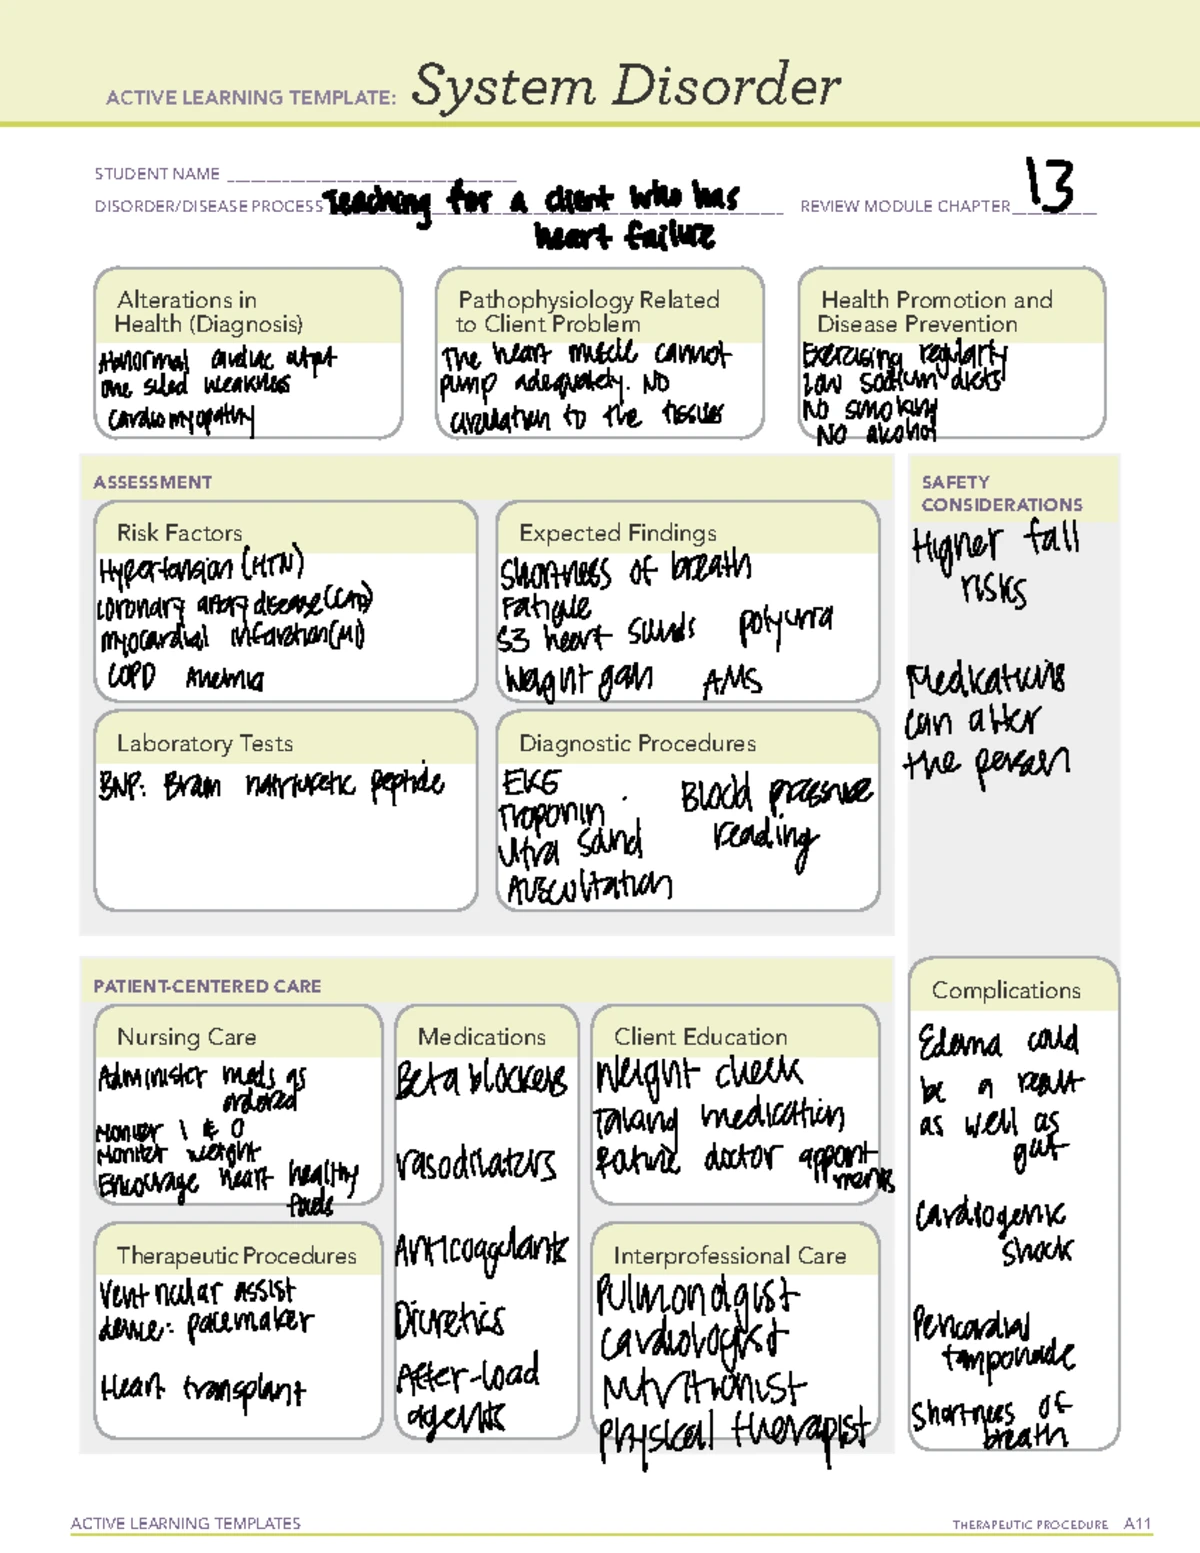 ACTIVE LEARNING TEMPLATE: System Disorder
STUDENT NAME
DISORDER/DISEASE PROCESS Teaching for a client who has
heart failure
REVIEW MODULE CHAPTER 13
Alterations in
Health (Diagnosis)
Abnormal cardiac utpt
one sided weakness
cardiomyopathy
Pathophysiology Related
to Client Problem
The heart muscle cannot
pump adequately. NO
circulation to the tissues
Health Promotion and
Disease Prevention
Exercising regularly
low sodium diets
NO smoking
NO alcohol
ASSESSMENT
Risk Factors
Hypertension (HTN)
coronary artery disease (CAD)
myocardial infarction (MI)
COPD Anemia
Expected Findings
Shortness of breath
Fatigue
S3 heart sounds polyuria
Weight gain AMS
Laboratory Tests
BNP: Brain natriuretic peptide
Diagnostic Procedures
EKG
Troponin
Ultra sound
Auscultation
Blood pressure
reading
SAFETY
CONSIDERATIONS
Higher fall
risks
Medications
can alter
the person
PATIENT-CENTERED CARE
Nursing Care
Administer meds as
ordered
Monitor I & O
Monitor weight
Encourage heart healthy
foods
Medications
Beta blockers
vasodilators
Anticoagulants
Diuretics
After-load
agents
Client Education
Weight check
Taking medication
Future doctor appoint
ments
Therapeutic Procedures
Ventricular assist
device: pacemaker
Heart transplant
Interprofessional Care
Pulmonolgist
cardiologist
nutritionist
physical therapist
Complications
Edema could
be a result
as well as
gut
cardiogenic
shock
Pericardial
tamponade
Shortness of
breath
ACTIVE LEARNING TEMPLATES
THERAPEUTIC PROCEDURE A11